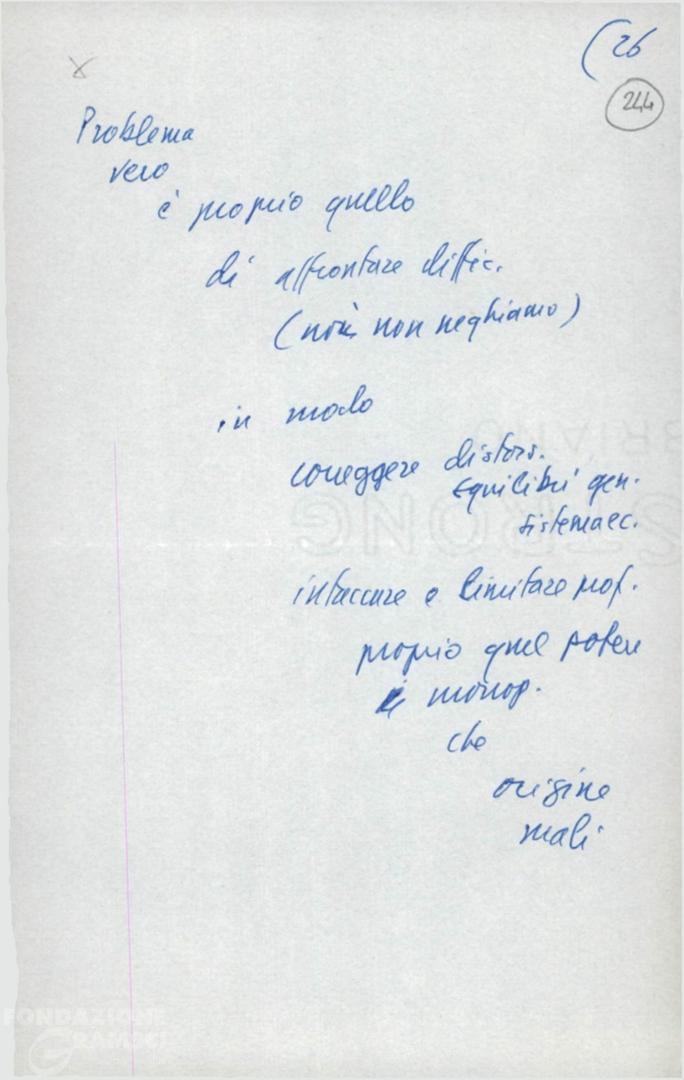 (26
244
x
Problema
vero
è proprio quello
di affrontare diffic.
(noi non neghiamo)
in modo
correggere distors.
Equilibri gen.
sistema ec.
intaccare e limitare prof.
proprio quel potere
di monop.
che
origine
mali
STRONG
FONDAZIONE
GRAMSCI